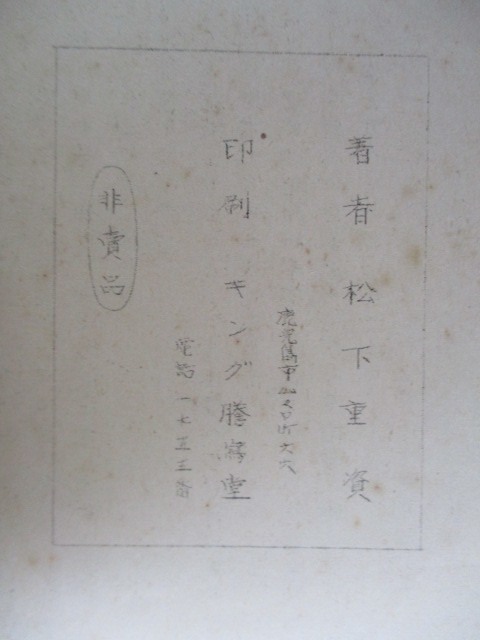 著者 松下重資
鹿児島市
印刷 キング謄寫堂
電話 一七五三番
非賣品